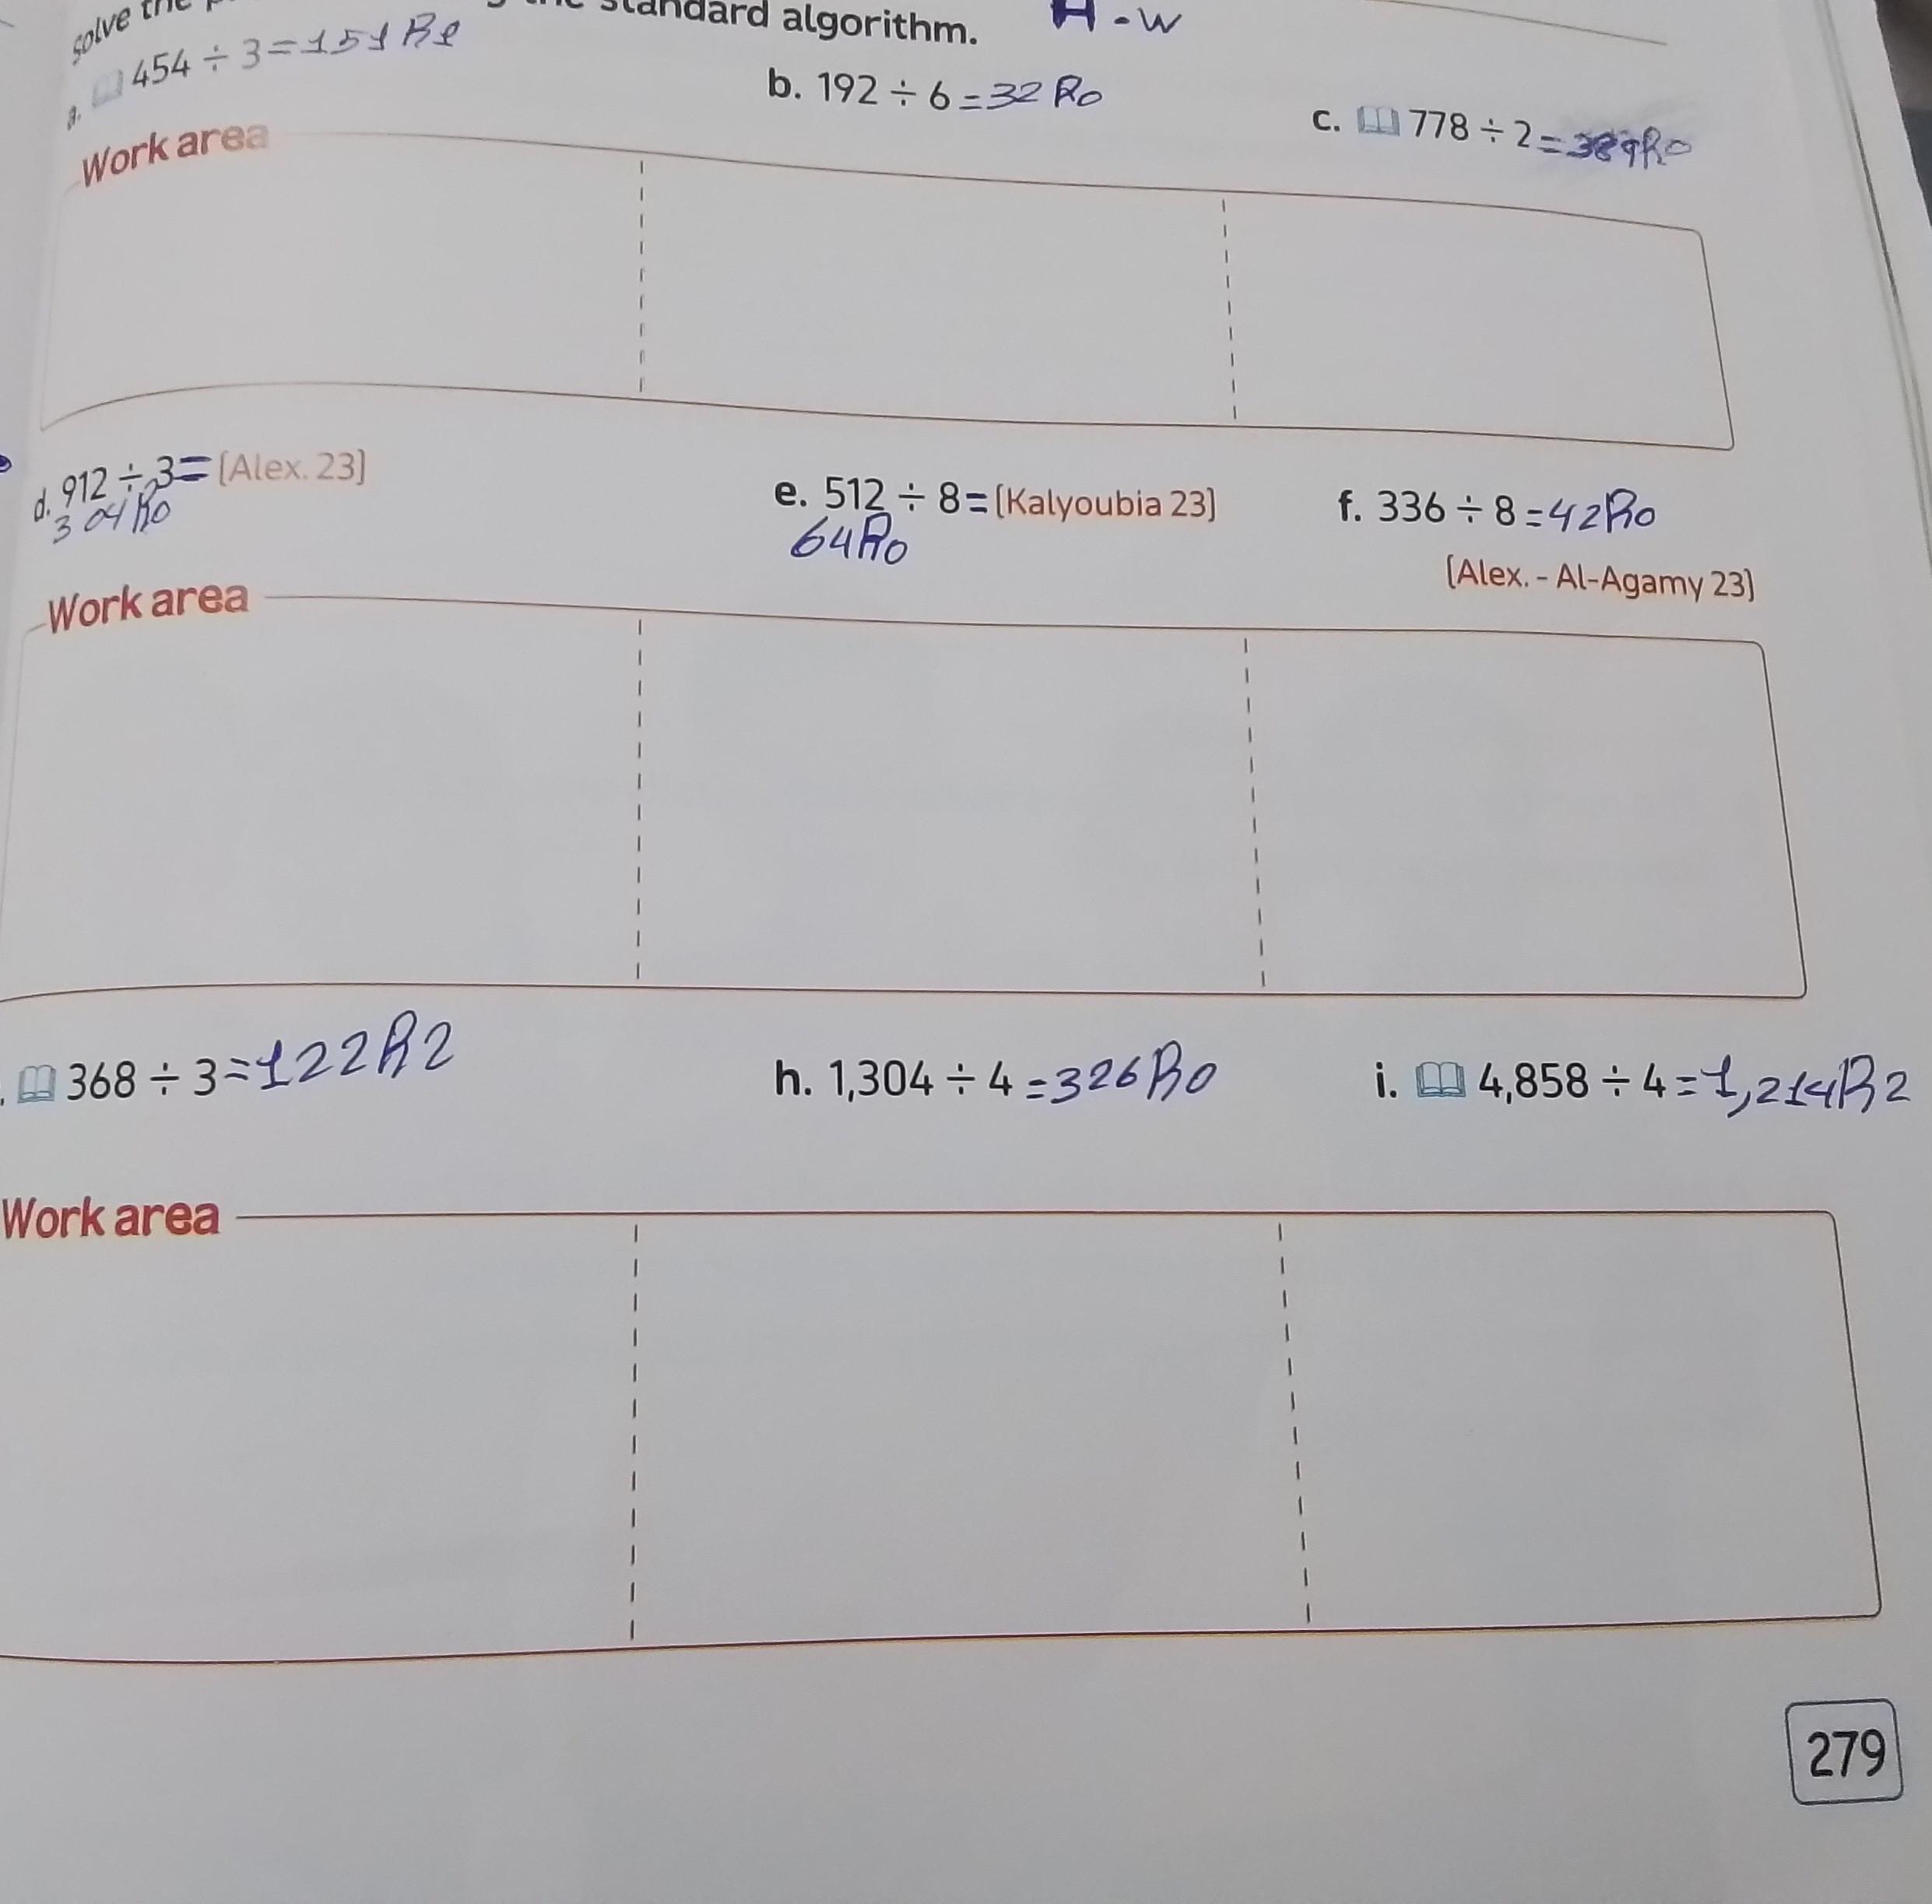 solve the standard algorithm. H-W
a. 454 ÷ 3 = 151 R1
b. 192 ÷ 6 = 32 R0
c. 778 ÷ 2 = 389 R0
Work area
d. 912 ÷ 3 = [Alex. 23]
304 R0
e. 512 ÷ 8 = [Kalyoubia 23]
64 R0
f. 336 ÷ 8 = 42 R0
[Alex. - Al-Agamy 23]
Work area
368 ÷ 3 = 122 R2
h. 1,304 ÷ 4 = 326 R0
i. 4,858 ÷ 4 = 1,214 R2
Work area
279